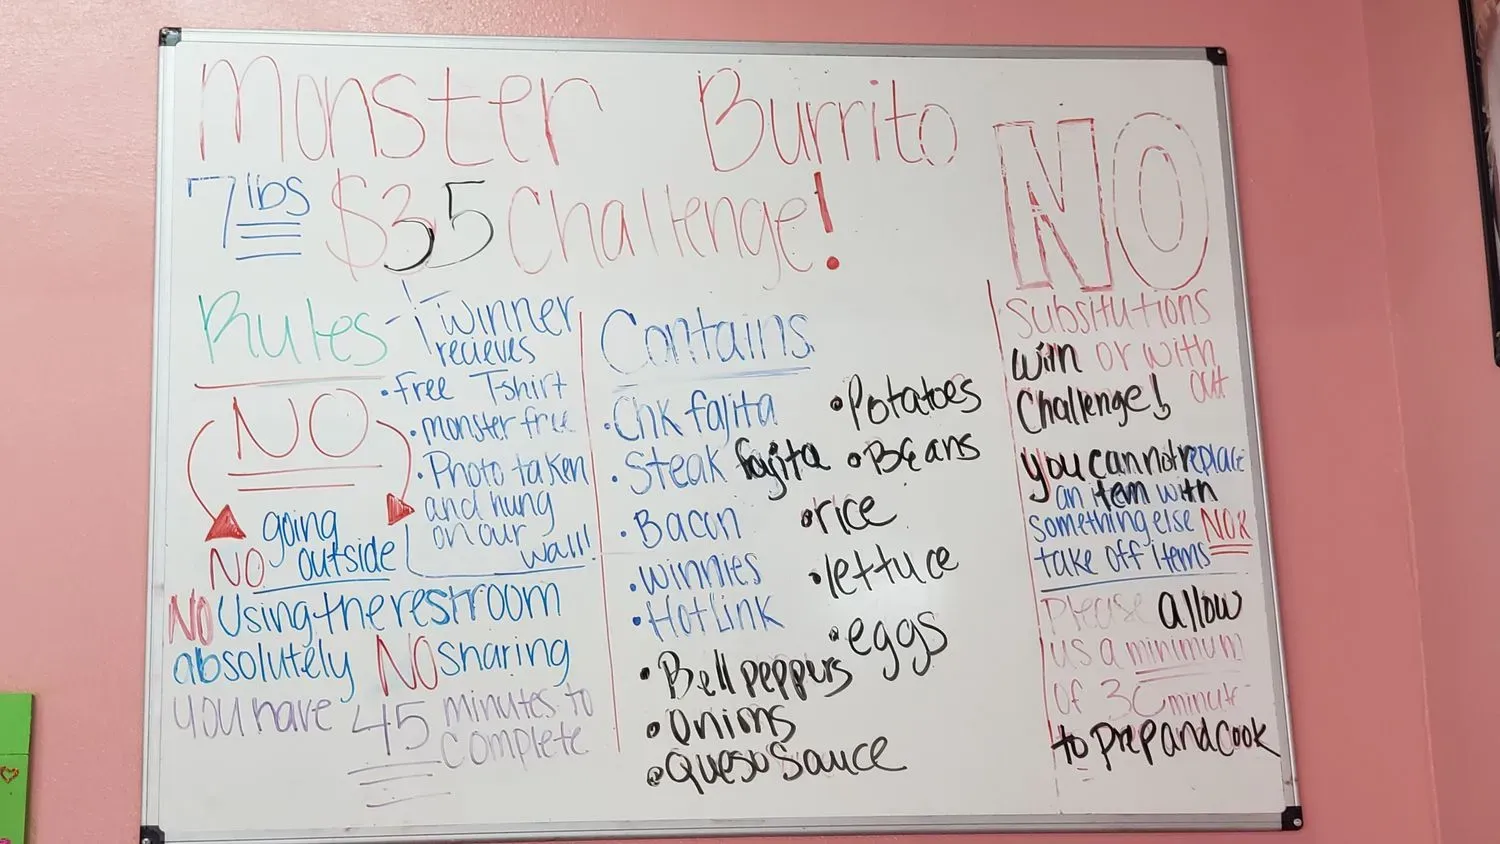 Monster Burrito
7 lbs $35 Challenge!
Rules - winner
recieves
• free Tshirt
• monster free
• Photo taken
and hung
on our
wall!
NO
NO going
outside
NO Using the restroom
absolutely NO sharing
you have 45 minutes to
complete
Contains
• Chk fajita
• Steak fajita
• Bacon
• winnies
• Hot Link
• Bell peppers
• onions
• Queso Sauce
• Potatoes
• Beans
• rice
• lettuce
• eggs
NO
Substitutions
with or with
out
Challenge!
you cannot replace
an item with
something else NOR
take off items
Please allow
us a minimum
of 30 minute
to prep and cook